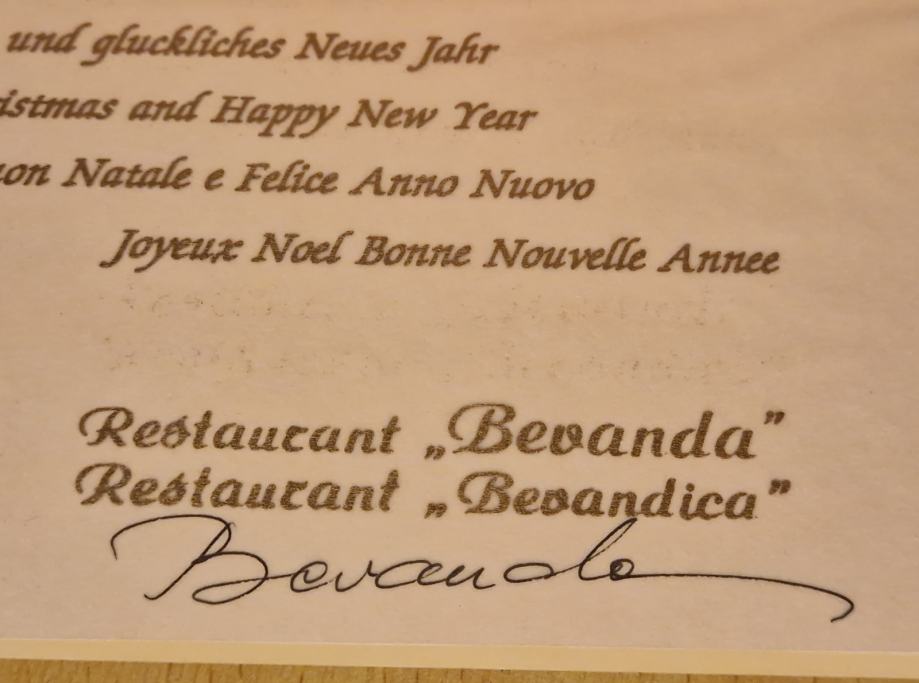 und gluckliches Neues Jahr
istmas and Happy New Year
on Natale e Felice Anno Nuovo
Joyeux Noel Bonne Nouvelle Annee
Restaurant „Bevanda”
Restaurant „Bevandica”
Bevanda